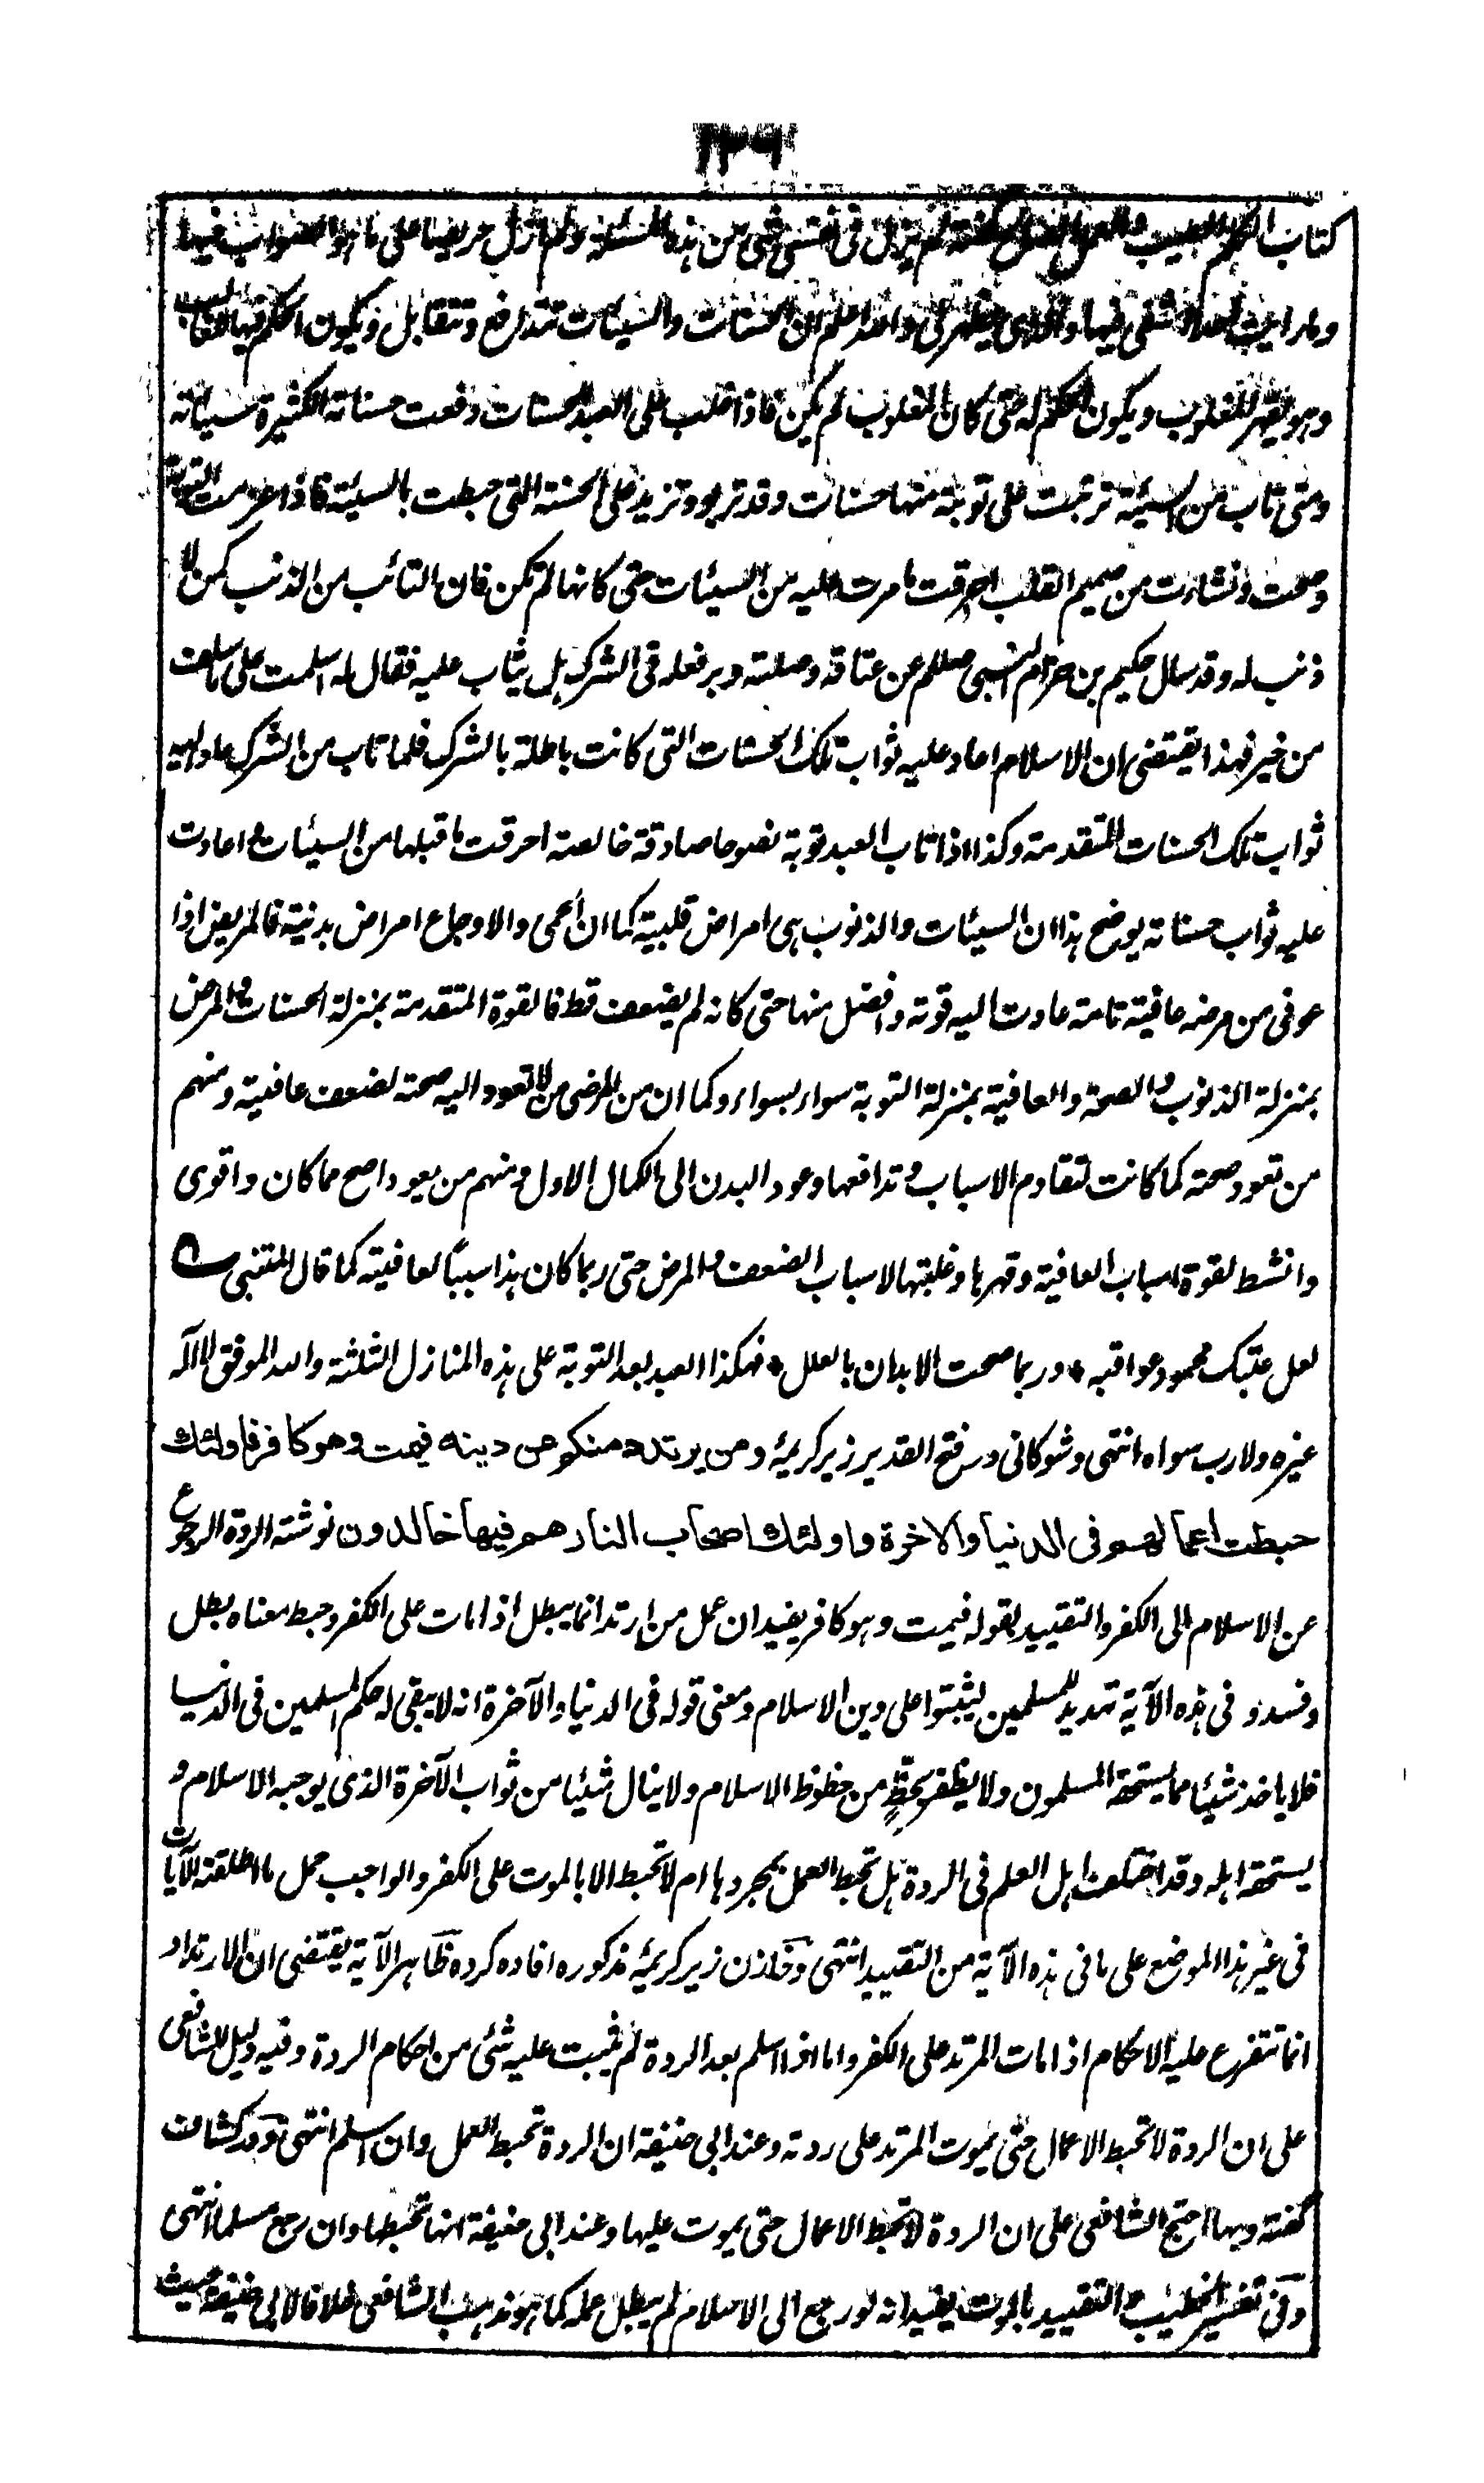 ۱۳۹
كتاب الكلم الطيب والعمل الصالح گفته لم يزل فى نفسى شئ من هذه المسئلة ولم ازل حريصا على ما هو الصواب فيها
وما رايت احدا شفى فيها والذى يظهر لى والله اعلم ان الحسنات والسيئات تتدافع وتتقابل ويكون الحكم فيها للغالب
وهو يقهر المغلوب ويكون الحكم له حتى كان المغلوب لم يكن فاذا غلب على العبد الحسنات دفعت حسناته الكثيرة سيئاته
ومتى تاب من السيئة ترتبت على توبة منها حسنات وقد تربو وتزيد على الحسنة التى حبطت بالسيئة فاذا عزمت التوبة
وصحت ونشاءت من صميم القلب احرقت ما مرت عليه من السيئات حتى كانها لم تكن فان التائب من الذنب كمن لا
ذنب له وقد سال حكيم بن حزام النبى صللم عن عتاقة وصلته وبر فعله فى الشرك هل يثاب عليه فقال له اسلمت على ما سلف
من خير فهذا يقتضى ان الاسلام اعاد عليه ثواب تلك الحسنات التى كانت باطلة بالشرك فلما تاب من الشرك عاد اليه
ثواب تلك الحسنات المتقدمة وكذا اذا تاب العبد توبة نصوحا صادقة خالصة احرقت ما قبلها من السيئات واعادت
عليه ثواب حسناته يوضح هذا ان السيئات والذنوب هى امراض قلبية كما ان الحمى والاوجاع امراض بدنية فالمريض اذا
عوفى من مرضه عافية تامة عادت اليه قوته وافضل منها حتى كانه لم يضعف قط فالقوة المتقدمة بمنزلة الحسنات والمرض
بمنزلة الذنوب والصحة والعافية بمنزلة التوبة سواء بسواء وكما ان من المرضى من لا تعود اليه صحته لضعف عافية ومنهم
من تعود صحته كما كانت لتقادم الاسباب وتدافعها وعود البدن الى الكمال الاول ومنهم من يعود اصح مما كان واقوى
وانشط لقوة اسباب العافية وقهرها وغلبتها لاسباب الضعف والمرض حتى ربما كان هذا سببا لعافيته كما قال المتنبى ؎
لعل عتبك محمود عواقبه ٭ وربما صحت الابدان بالعلل ٭ فهكذا العبد بعد التوبة على هذه المنازل الثلثة والله الموفق لا اله
غيره ولا رب سواه انتهى وشوكانى در فتح القدير زير كريمۀ ومن يرتدد منكم عن دينه فيمت وهو كافر فاولئك
حبطت اعمالهم فى الدنيا والاخرة واولئك اصحاب النار هم فيها خالدون نوشته الردة الرجوع
عن الاسلام الى الكفر والتقييد لقوله فيمت وهو كافر يفيد ان عمل من ارتد انما يبطل اذا مات على الكفر وحبط معناه بطل
وفسد وفى هذه الآية تهديد للمسلمين ليثبتوا على دين الاسلام ومعنى قوله فى الدنيا والآخرة انه لا يبقى له حكم المسلمين فى الدنيا
فلا ياخذ شيئا مما يستحقه المسلمون ولا يظفر بحظٍ من حظوظ الاسلام ولا ينال شيئا من ثواب الآخرة الذى يوجبه الاسلام و
يستحقه اهله وقد اختلف اهل العلم فى الردة هل تحبط العمل بمجردها ام لا تحبط الا بالموت على الكفر والواجب حمل ما اطلقته الآيات
فى غير هذا الموضع على ما فى هذه الآية من التقييد انتهى وخازن زير كريمۀ مذكوره افاده كرده ظاهر الآية يقتضى ان الارتداد
انما تتفرع عليه الاحكام اذا مات المرتد على الكفر واما اذا اسلم بعد الردة لم يثبت عليه شئ من احكام الردة وفيه دليل للشافعى
على ان الردة لا تحبط الاعمال حتى يموت المرتد على ردته وعند ابى حنيفة ان الردة تحبط العمل وان اسلم انتهى ودر كشاف
گفته وبها احتج الشافعى على ان الردة لا تحبط الاعمال حتى يموت عليها وعند ابى حنيفة انها تحبطها وان رجع مسلما انتهى
وفى تفسير الخطيب والتقييد بالموت يفيد انه لو رجع الى الاسلام لم يبطل عمله كما هو مذهب الشافعى خلافا لابى حنيفة حيث